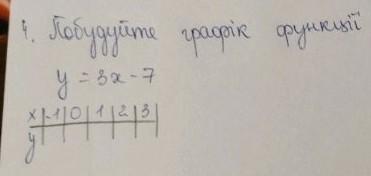 4. Побудуйте графік функції
y = 3x - 7
x | -1 | 0 | 1 | 2 | 3 |
y